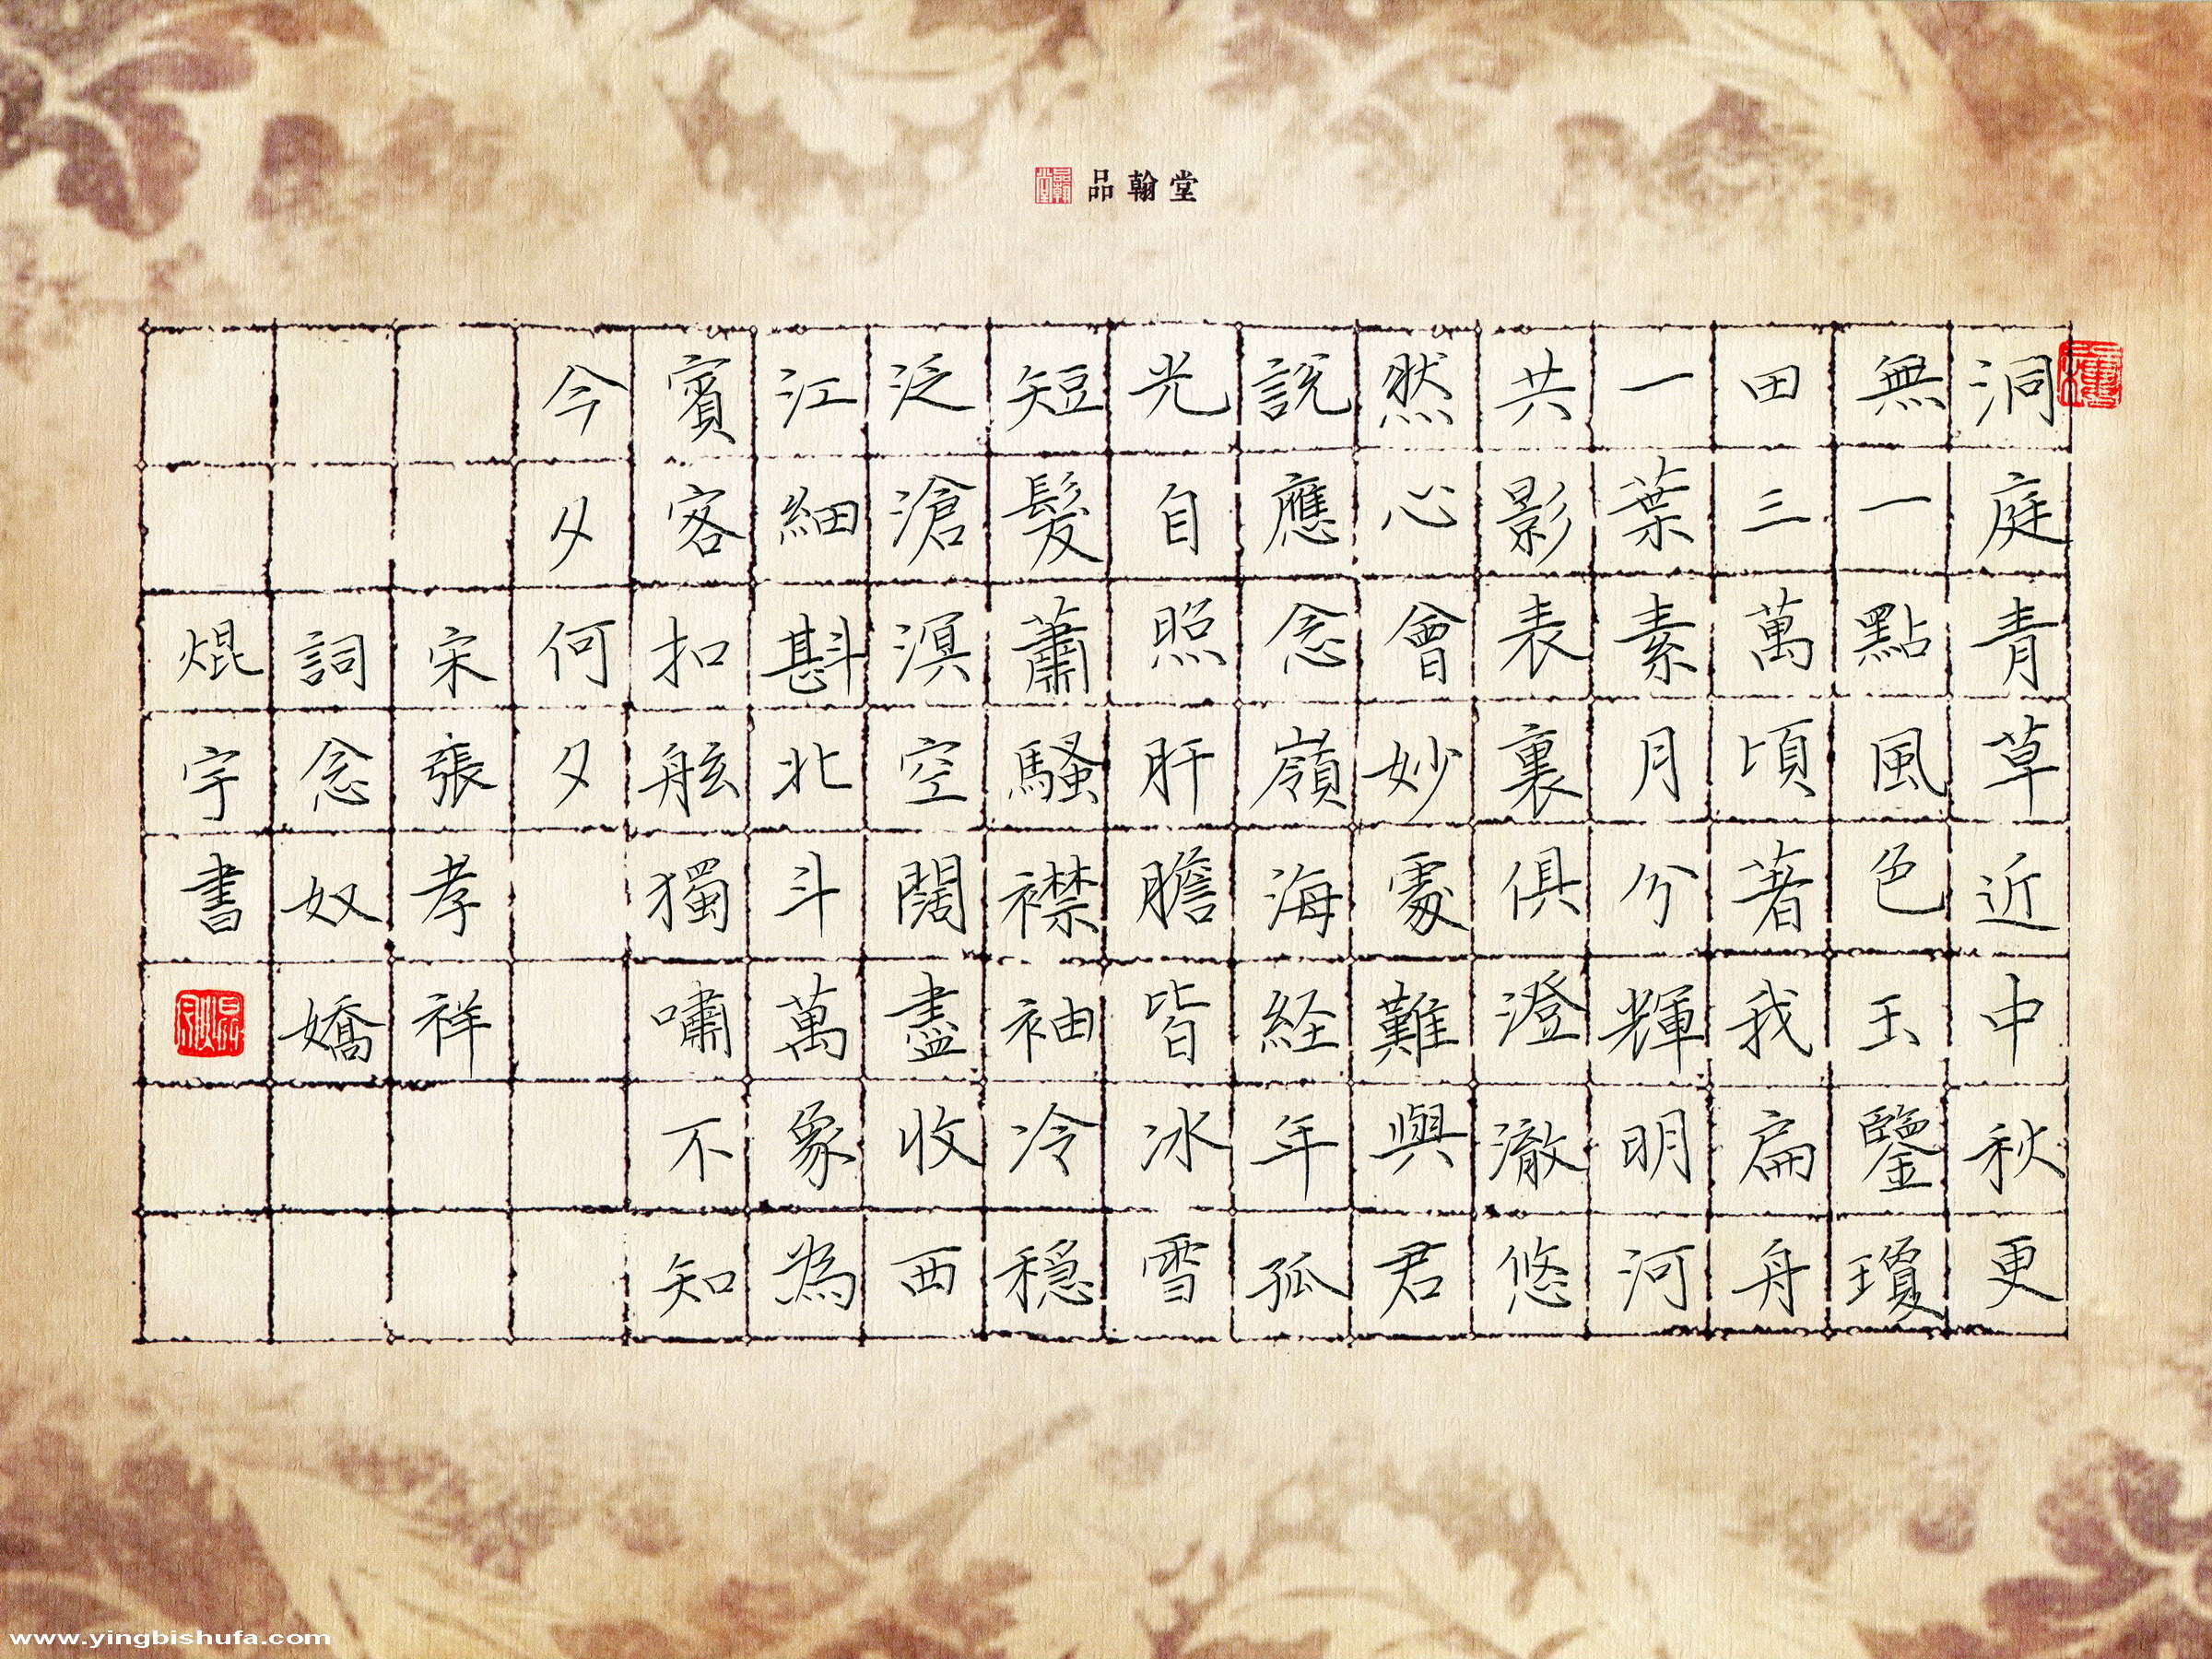 品翰堂
洞庭青草近中秋更
無一點風色玉鑒瓊
田三萬頃著我扁舟
一葉素月分輝明河
共影表裏俱澄澈悠
然心會妙處難與君
說應念嶺海経年孤
光自照肝膽皆冰雪
短髮蕭騷襟袖冷穩
泛滄溟空闊盡收西
江細斟北斗萬象為
賓客扣舷獨嘯不知
今夕何夕
宋張孝祥
詞念奴嬌
焜宇書
www.yingbishufa.com